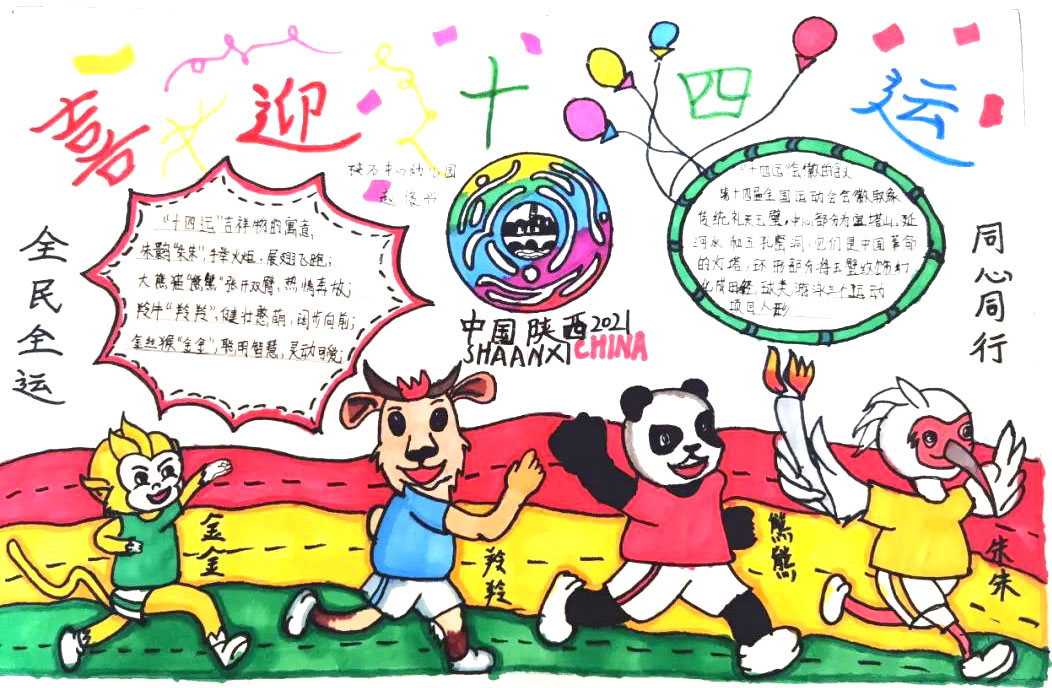 喜迎十四运
中心幼儿园
赵俊兴
"十四运"吉祥物的寓意
朱鹮"朱朱",手举火炬,展翅飞跑;
大熊猫"熊熊"张开双臂,热情奔放;
羚牛"羚羚",健壮憨萌,阔步向前;
金丝猴"金金",聪明智慧,灵动可爱;
"十四运"会徽的含义
第十四届全国运动会会徽取象
传统礼天玉璧,中心部分为宝塔山、延
河水和五孔窑洞,它们是中国革命
的灯塔,环形部分将玉璧纹饰幻
化成田径、球类、游泳三个运动
项目人形
全民全运
同心同行
中国陕西2021
SHAANXI CHINA
金金
羚羚
熊熊
朱朱